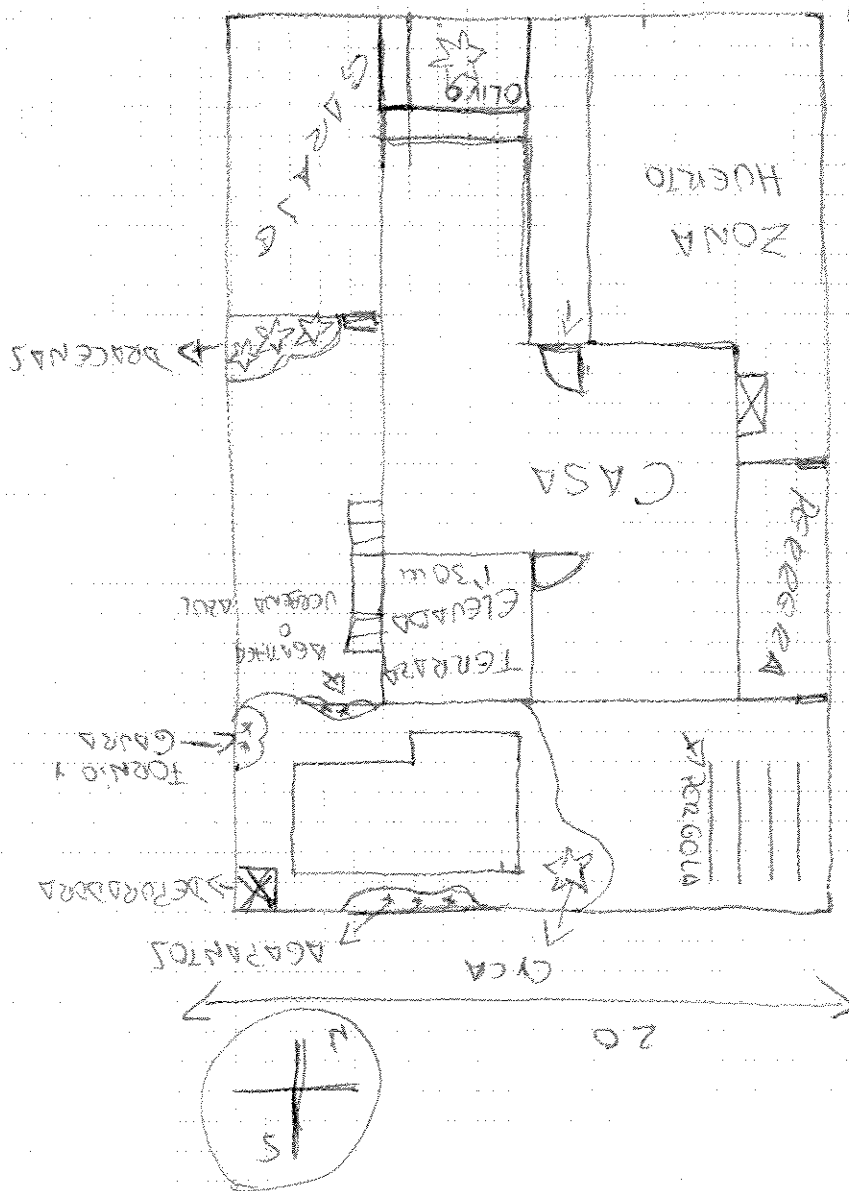 S
N
20
CYCA
AGAPANTOS
DEPURADORA
PERGOLA
FORNIO Y
GAURA
TERRASA
ELEVADA
1'30 m
AGATHEA
O
VERBENA AZUL
PERRERA
CASA
DRACENAS
ZONA
HUERTO
GARAJE
OLIVO